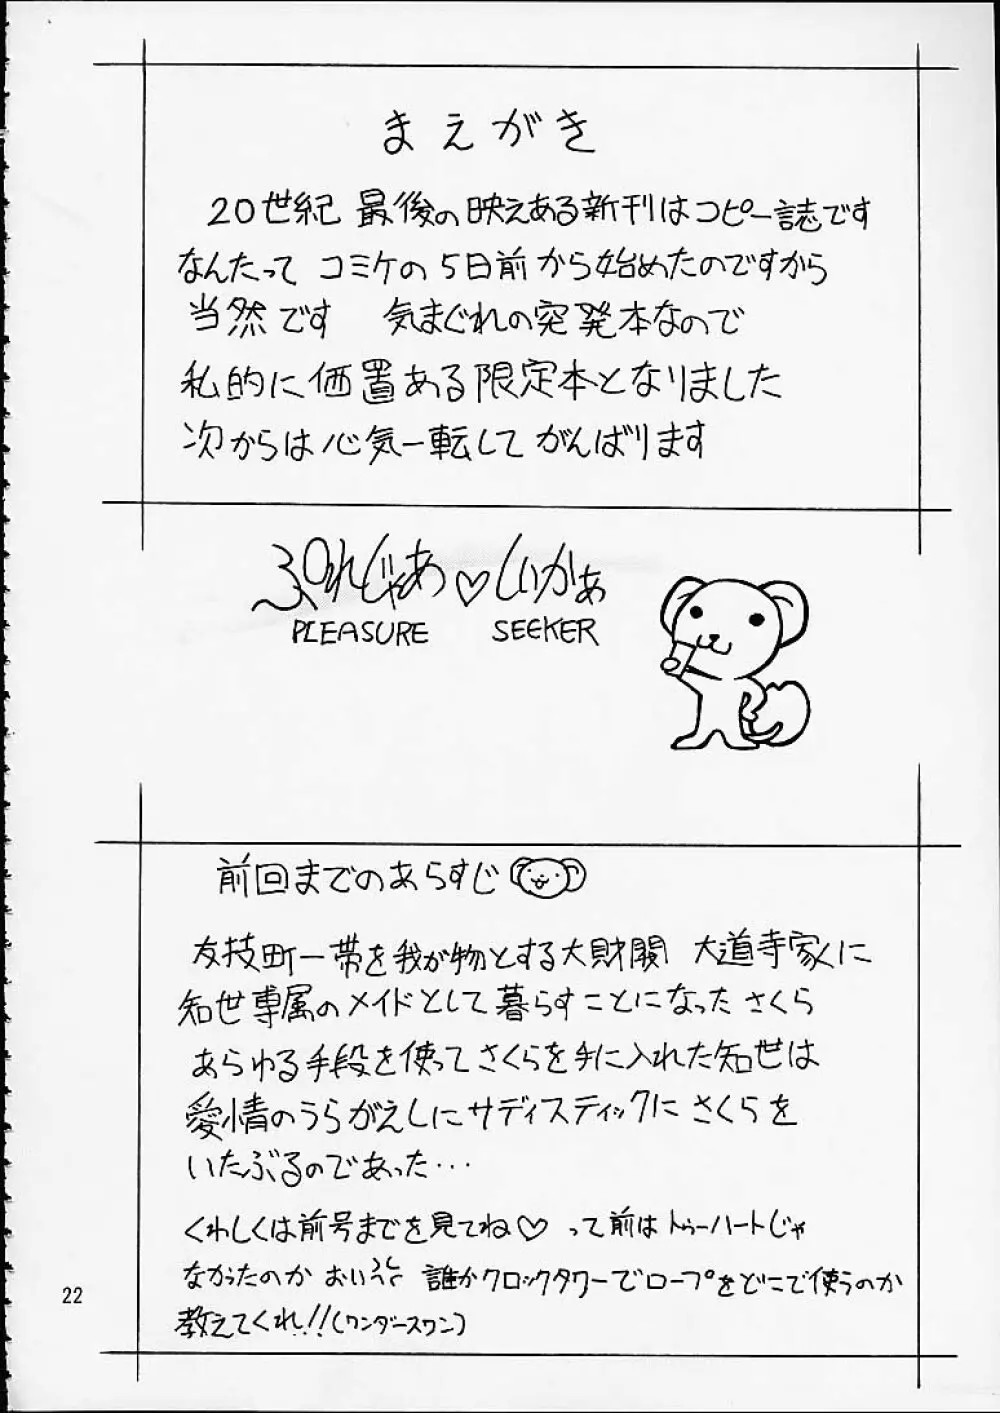 まえがき
20世紀 最後の映えある新刊はコピー誌です
なんたって コミケの5日前から始めたのですから
当然です 気まぐれの突発本なので
私的に価置ある限定本となりました
次からは心気一転して がんばります
ぷれじゃあ♡しいかぁ
PLEASURE SEEKER
前回までのあらすじ
友技町一帯を我が物とする大財閥 大道寺家に
知世専属のメイドとして暮らすことになったさくら
あらゆる手段を使ってさくらを手に入れた知世は
愛情のうらがえしにサディスティックにさくらを
いたぶるのであった…
くわしくは前号までを見てね♡ って前はトゥーハートじゃ
なかったのか おいうぐ 誰かクロックタワーでロープをどこで使うのか
教えてくれ!!(ワンダースワン)
22